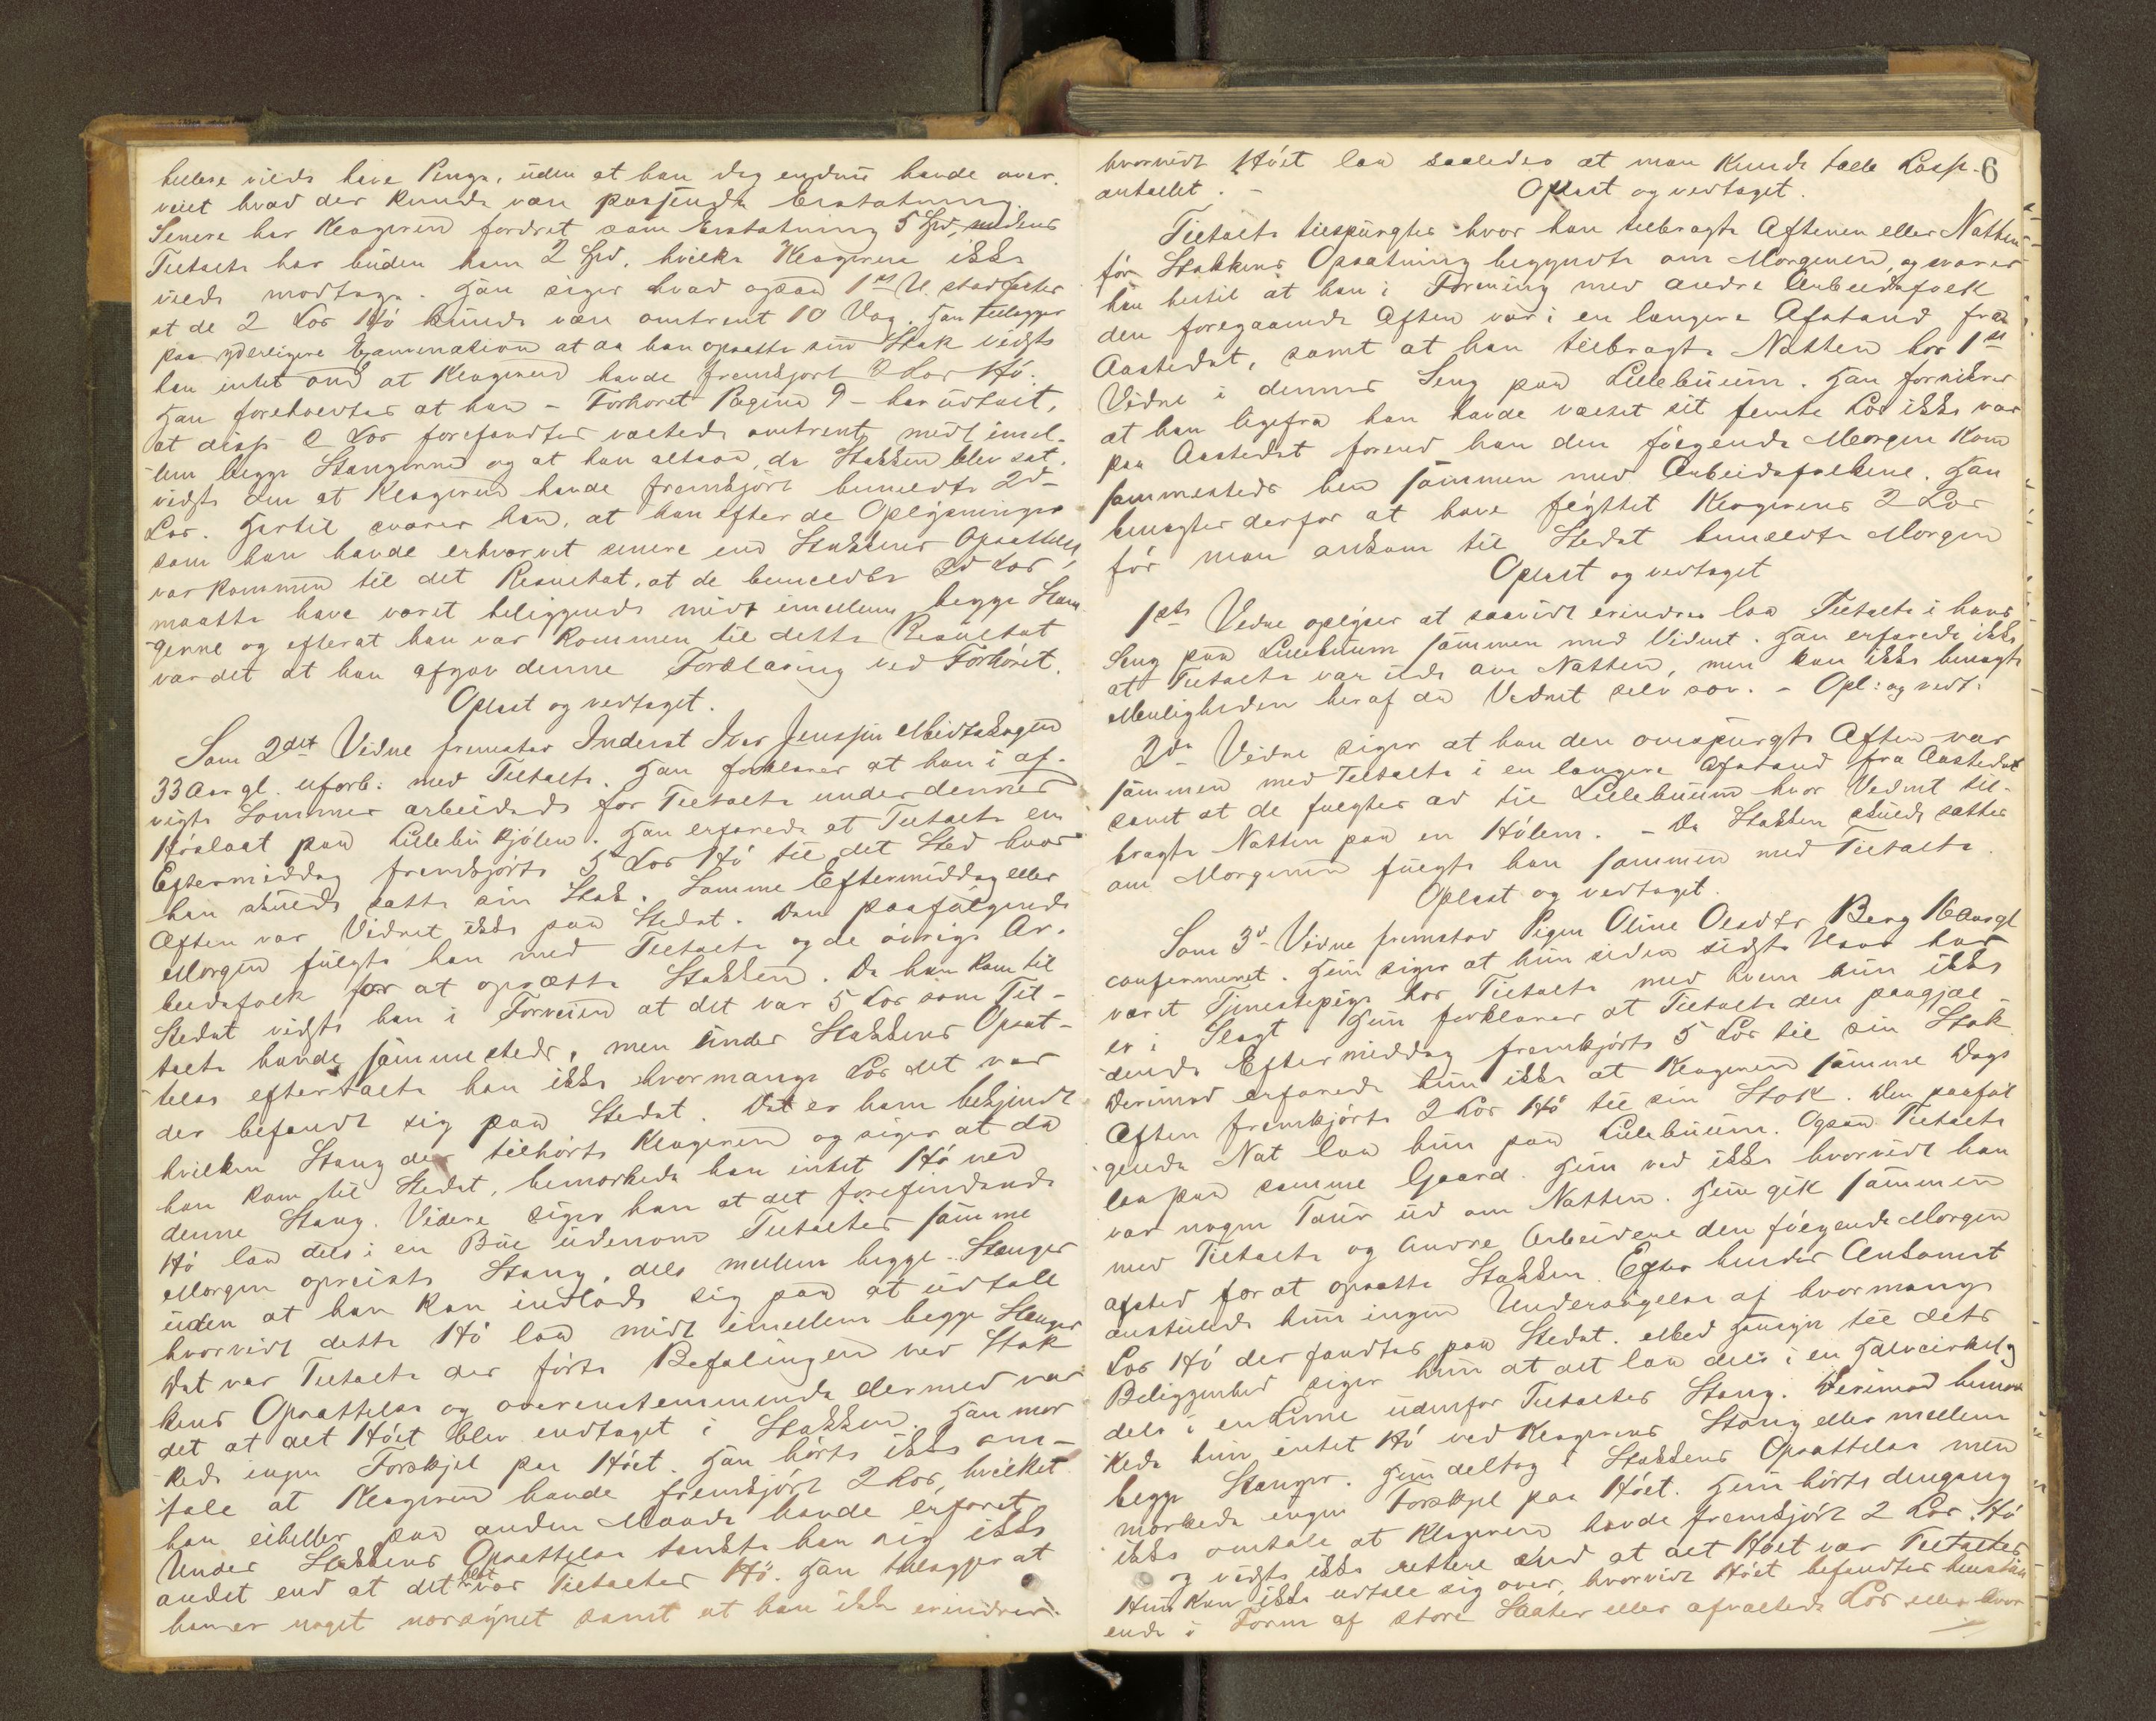 hellere vilde have Penge, uden at han dog endnu havde over-
veiet hvad der kunde være passende Erstatning.
Senere har Klageren fordret som Erstatning 5 Spd, medens
Tiltalte har buden ham 2 Spd, hvilke Klageren ikke
vilde modtage. Han siger hvad ogsaa 1ste V. stadfæster
at de 2 Lós Hó kunde være omtrent 10 Vog. Han tillægger
paa yderligere Examination at da han opsatte sin Stak vidste
han intet om at Klageren havde fremkjórt 2 Lós Hó.
Han foreholdtes at han - Forhóret Pagina 9 - har udtalt,
at disse 2 Lós forefandtes væltede omtrent midt imel-
lem begge Stængerne og at han altsaa, da Stakken blev sat,
vidste om at Klageren havde fremkjórt bemeldte 2de
Lós. Hertil svarer han, at han efter de Oplysninger
som han havde erhvervet senere end Stakkens Opsættelse
var kommen til det Resultat, at de bemeldte 2de Lós,
maatte have været beliggende midt imellem begge Stæn-
gerne og efterat han var kommen til dette Resultat
var det at han afgav denne Forklaring ved Forhóret.
Oplæst og vedtaget.
Som 2det Vidne fremstar Inderst Iver Jenssen Midtskogen
33 Aar gl. uforb: med Tiltalte. Han forklarer at han i af-
vigte Sommer arbeidede for Tiltalte under dennes
Hóslaat paa Lillebu kjólen. Han erfarede at Tiltalte en
Eftermiddag fremkjórte 5 Lós Hó til det Sted hvor
han skulde sætte sin Stak. Samme Eftermiddag eller
Aften var Vidnet ikke paa Stedet. Den paafólgende
Morgen fulgte han med Tiltalte og de óvrige Ar-
beidsfolk for at opsætte Stakken. Da han kom til
Stedet vidste han i Forveien at det var 5 Lós som Til-
talte havde sammesteds, men under Stakkens Opsæt-
telse eftertalte han ikke hvormange Lós det var
der befandt sig paa Stedet. Det er ham bekjendt
hvilken Stang der tilhórte Klageren og siger at da
han kom til Stedet, bemærkede han intet Hó ved
denne Stang. Videre siger han at det forefindende
Hó laa dels i en Bue udenom Tiltaltes samme
Morgen opreiste Stang, dels mellem begge Stænger
uden at han kan indlade sig paa at udtale
hvorvidt dette Hó laa midt imellem begge Stænger
Det var Tiltalte der fórte Befalingen ved Stak
kens Opsættelse og overensstemmende dermed var
det at alt Hóet blev indtaget i Stakken. Han mær
kede ingen Forskjel paa Hóet. Han hórte ikke om-
tale at Klageren havde fremkjórt 2 Lós, hvilket
han eiheller paa anden Maade havde erfaret.
Under Stakkens Opsættelse tænkte han sig ikke
andet end at det alt var Tiltaltes Hó. Han tillægger at
han er noget nærsynet samt at han ikke erindrer
hvorvidt Hóet laa saaledes at man kunde tælle Læsse- 6
antallet. -
Oplæst og vedtaget.
Tiltalte tilspurgtes hvor han tilbragte Aftenen eller Natten
fór Stakkens Opsætning begyndte om Morgenen, og svarer
han hertil at han i Forening med andre Arbeidsfolk
den foregaaende Aften var i en længere Afstand fra
Aastedet, samt at han tilbragte Natten hos 1ste
Vidne i dennes Seng paa Lillebuum. Han forsikrer
at han ligefra han havde væltet sit femte Lós ikke var
paa Aastedet forend han den fólgende Morgen kom
sammesteds hen sammen med Arbeidsfolkene. Han
benægter derfor at have flyttet Klagerens 2 Lós
fór man ankom til Stedet bemeldte Morgen
Oplæst og vedtaget
1ste Vidne oplyser at saavidt erindres laa Tiltalte i hans
Seng paa Lillebuum sammen med Vidnet. Han erfarede ikke
at Tiltalte var ude om Natten, men kan ikke benægte
Muligheden heraf da Vidnet selv sov. - Opl: og vedt:
2de Vidne siger at han den omspurgte Aften var
sammen med Tiltalte i en længere Afstand fra Aastedet
samt at de fulgtes ad til Lillebuum hvor Vidnet til-
bragte Natten paa en Hólem. - Da Stakken skulde sættes
om Morgenen fulgte han sammen med Tiltalte.
Oplæst og vedtaget.
Som 3de Vidne fremstod Pigen Oline Olsdtr Berg 16 Aar gl
confermeret. Hun siger at hun siden sidste Vaar har
været Tjenestepige hos Tiltalte med hvem hun ikke
er i Slægt. Hun forklarer at Tiltalte den paagjæl-
dende Eftermiddag fremkjórte 5 Lós til sin Stak
Derimod erfarede hun ikke at Klageren samme Dags
Aften fremkjórte 2 Lós Hó til sin Stak. Den paafól
gende Nat laa hun paa Lillebuum. Ogsaa Tiltalte
laa paa samme Gaard. Hun ved ikke hvorvidt han
var nogen Tour ud om Natten. Hun gik sammen
med Tiltalte og andre Arbeidere den fólgende Morgen
afsted for at opsætte Stakken. Efter hendes Ankomst
anstillede hun ingen Undersógelse af hvormange
Lós Hó der fandtes paa Stedet. Med Hensyn til dets
Beliggenhed siger hun at det laa dels i en Halvcirkel og
dels i en Linie udenfor Tiltaltes Stang. Derimod bemær
kede hun intet Hó ved Klagerens Stang eller mellem
begge Stænger. Hun deltog i Stakkens Opsættelse men
mærkede ingen Forskjel paa Hóet. Hun hórte dengang
ikke omtale at Klageren havde fremkjórt 2 Lós Hó
og vidste ikke rettere end at alt Hóet var Tiltaltes
Hun kan ikke udtale sig over, hvorvidt Hóet befandtes henstaa
ende i Form af store Saater eller afvæltede Lós eller hvor